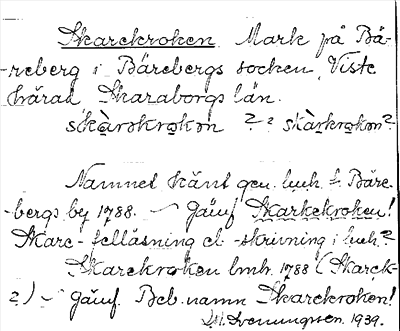 Skarekroken Mark på Bä-
reberg i Bärebergs socken, Viste
härad Skaraborgs län.
skàrskrokon ? ? skàrkrokon?
Namnet känt gen. lmh. f. Bäre-
bergs by 1788. – Jämf Skarkekroken!
Skare- felläsning el. -skrivning i lmh.?
Skarekroken lmh. 1788 (Skarek-
?) – Jämf. Beb. namn Skarekroken!
Svenungsson 1939.